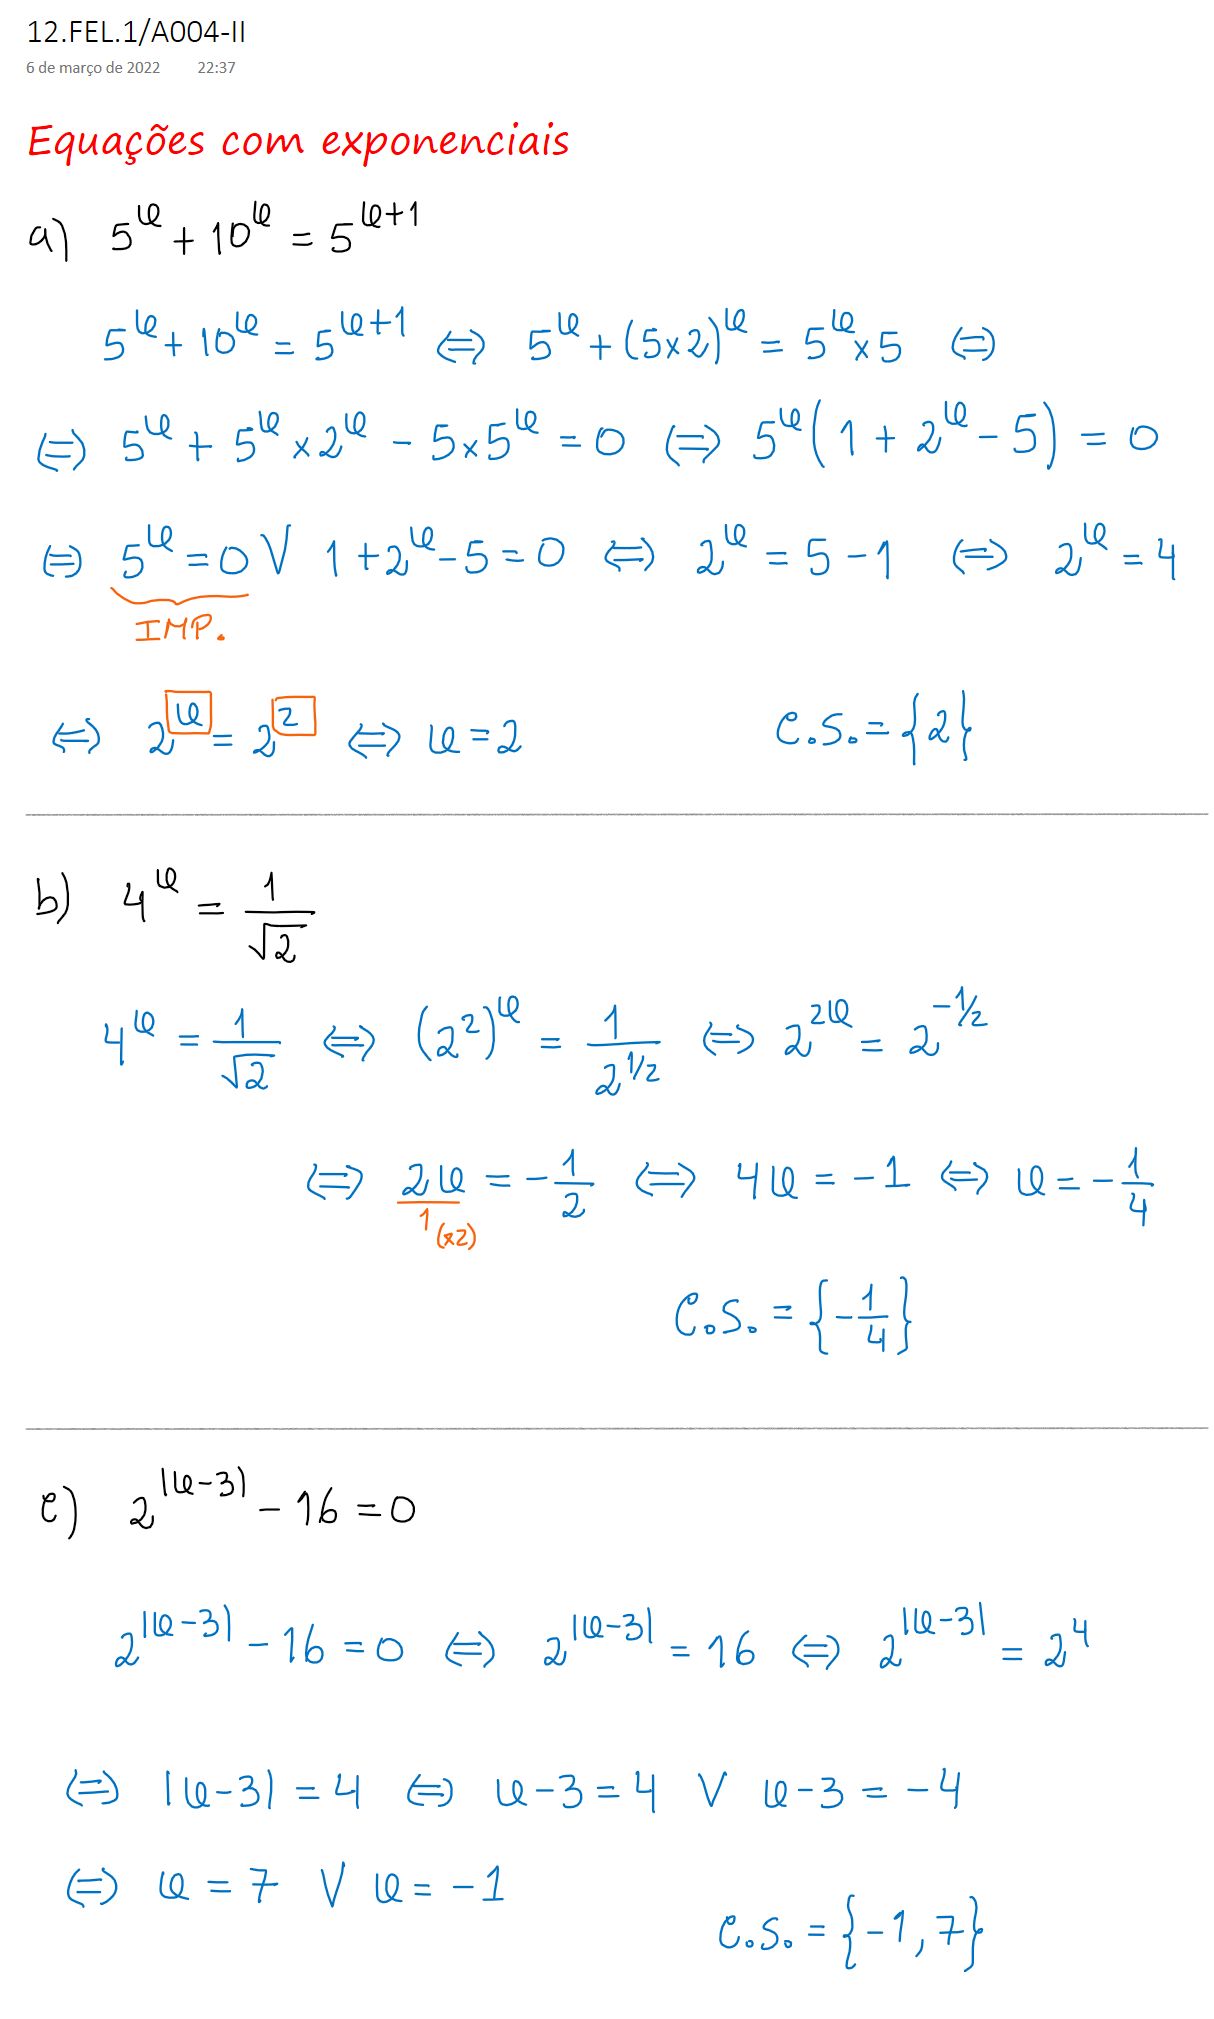 12.FEL.1/A004-II
6 de março de 2022 22:37
Equações com exponenciais
a) 5^x + 10^x = 5^(x+1)
5^x + 10^x = 5^(x+1) ⇔ 5^x + (5×2)^x = 5^x × 5 ⇔
⇔ 5^x + 5^x × 2^x - 5×5^x = 0 ⇔ 5^x (1 + 2^x - 5) = 0
⇔ 5^x = 0 ∨ 1 + 2^x - 5 = 0 ⇔ 2^x = 5 - 1 ⇔ 2^x = 4
IMP.
⇔ 2^x = 2^2 ⇔ x = 2 C.S. = {2}
b) 4^x = 1/√2
4^x = 1/√2 ⇔ (2^2)^x = 1/2^(1/2) ⇔ 2^(2x) = 2^(-1/2)
⇔ 2x/1 = -1/2 ⇔ 4x = -1 ⇔ x = -1/4
(×2)
C.S. = {-1/4}
c) 2^|x-3| - 16 = 0
2^|x-3| - 16 = 0 ⇔ 2^|x-3| = 16 ⇔ 2^|x-3| = 2^4
⇔ |x-3| = 4 ⇔ x-3 = 4 ∨ x-3 = -4
⇔ x = 7 ∨ x = -1
C.S. = {-1, 7}